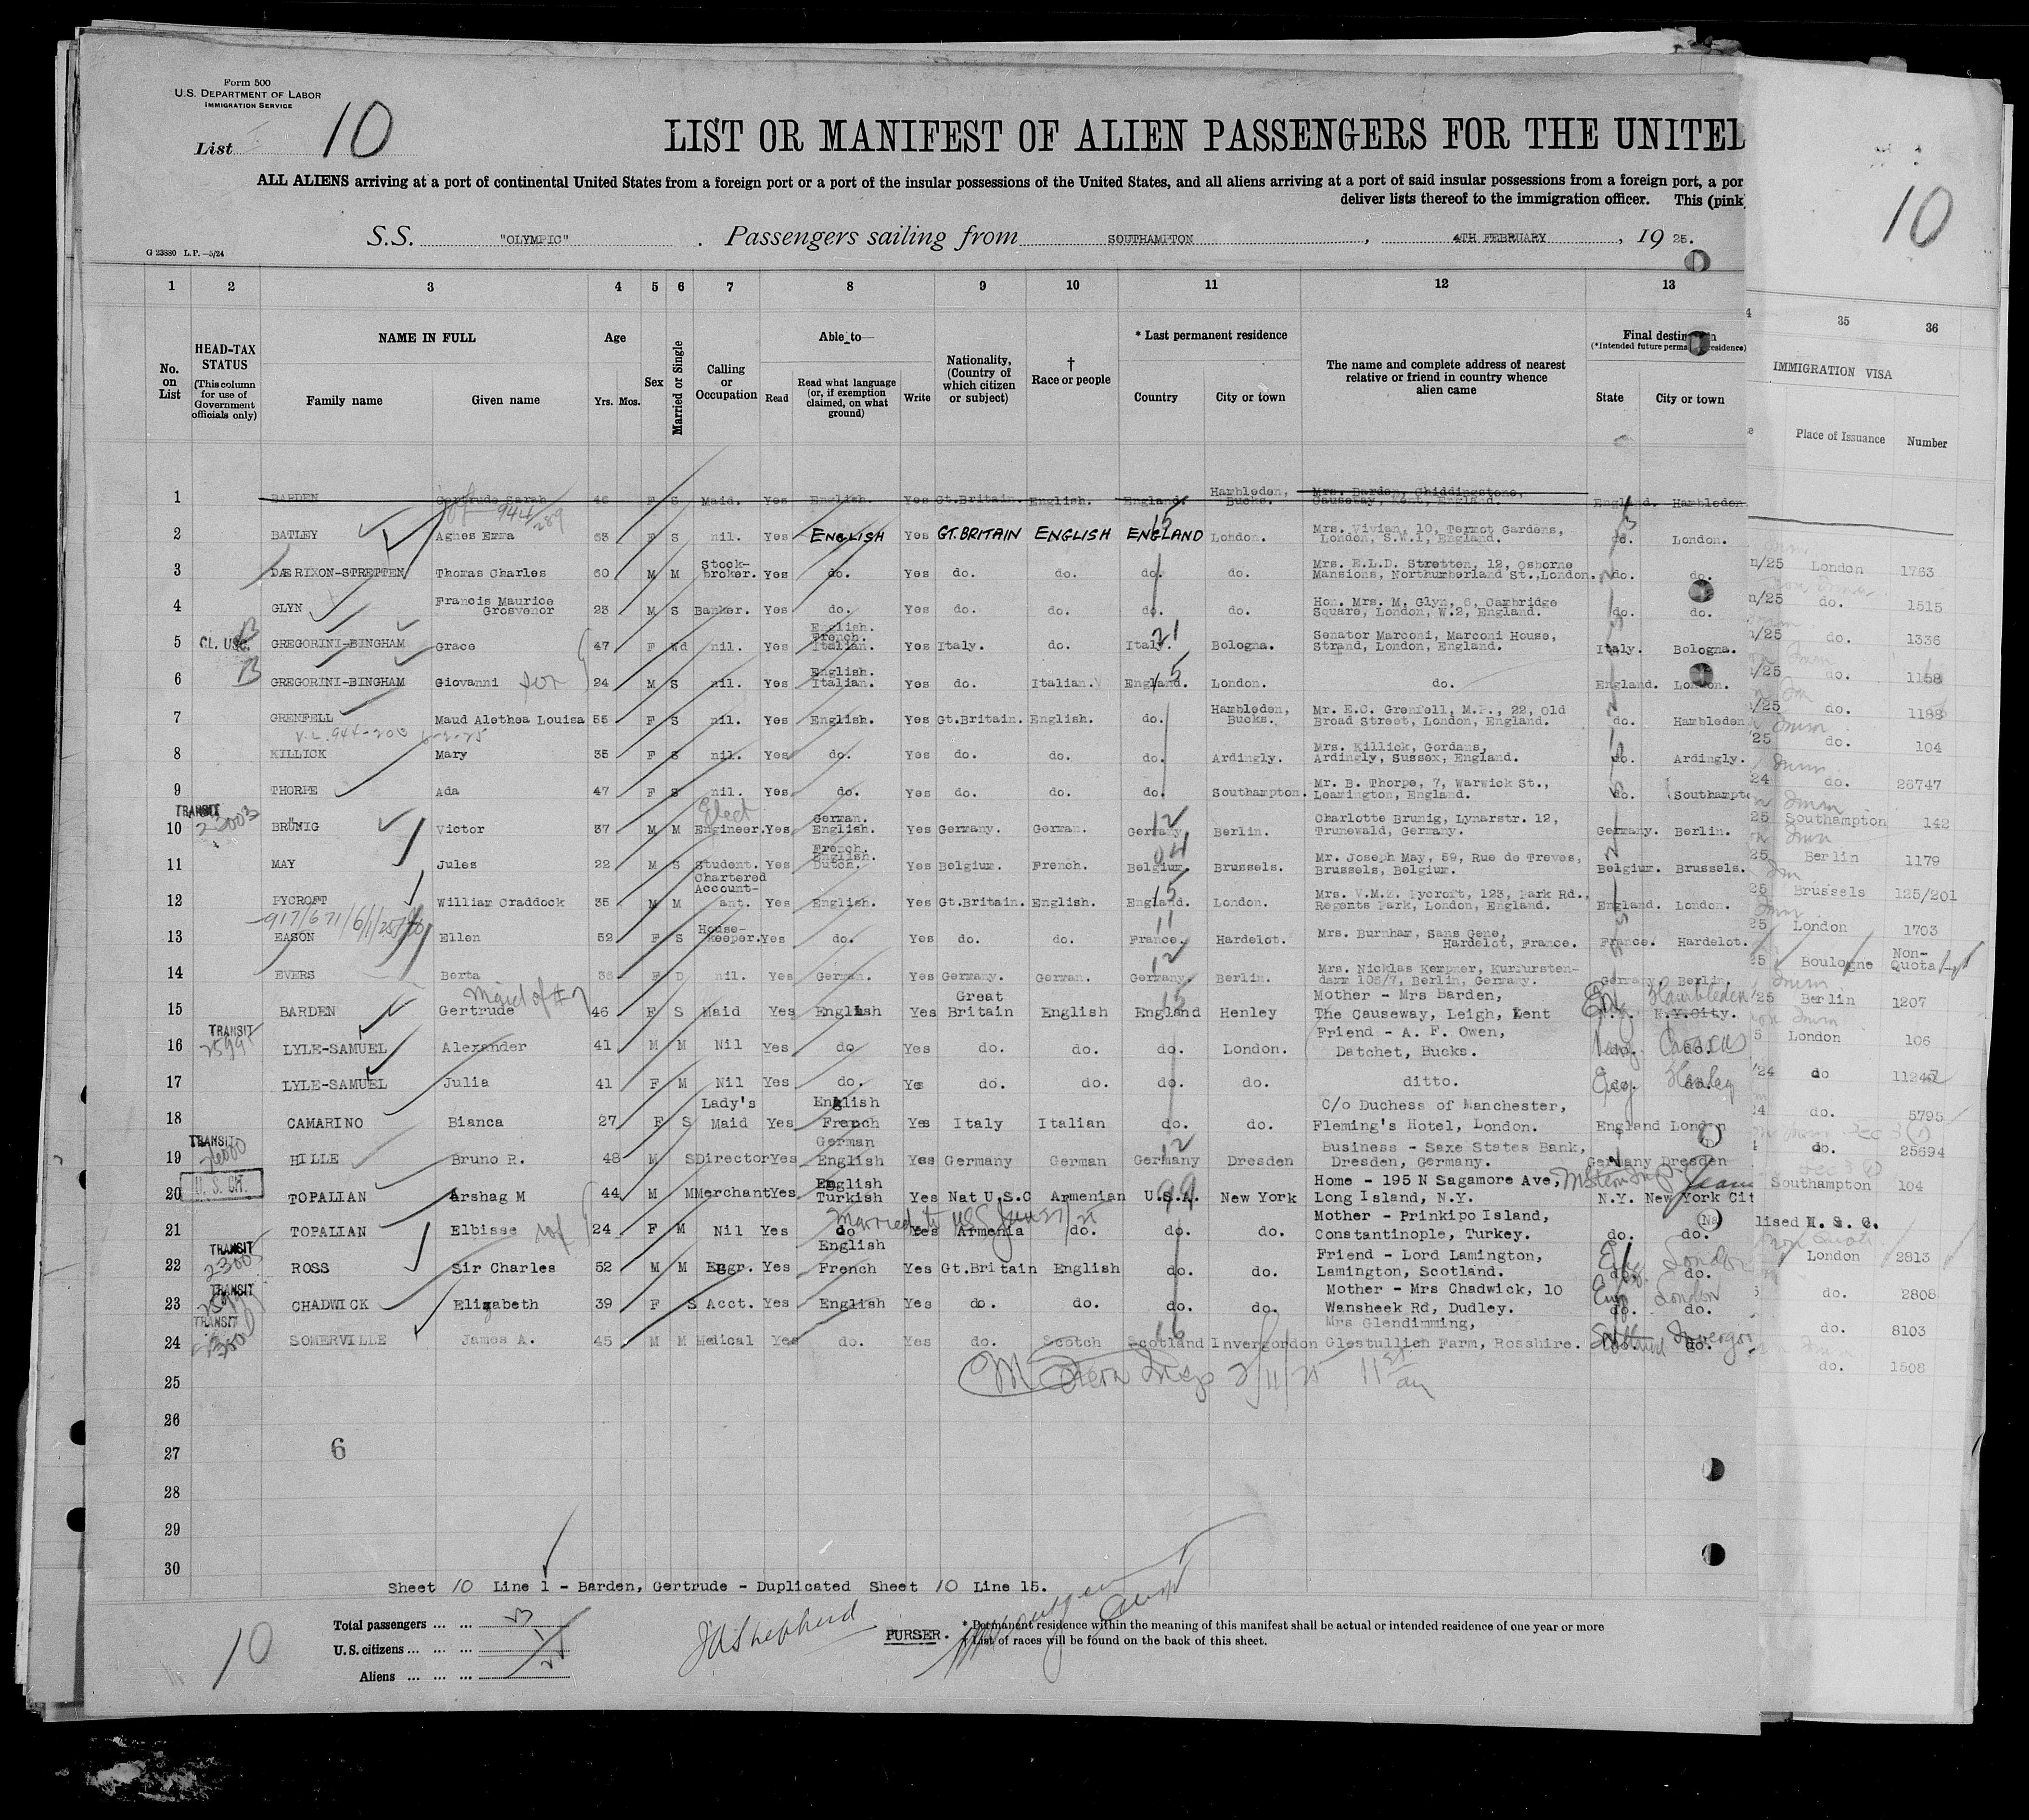 Form 500
U.S. DEPARTMENT OF LABOR
IMMIGRATION SERVICE
List 10
LIST OR MANIFEST OF ALIEN PASSENGERS FOR THE UNITED
10
ALL ALIENS arriving at a port of continental United States from a foreign port or a port of the insular possessions of the United States, and all aliens arriving at a port of said insular possessions from a foreign port, a por
deliver lists thereof to the immigration officer. This (pink
S.S. "OLYMPIC" . Passengers sailing from SOUTHAMPTON, 4TH FEBRUARY, 19 25.
G 23880 L.P.—5/24
1 2 3 4 5 6 7 8 9 10 11 12 13 35 36
No. on List
HEAD-TAX STATUS (This column for use of Government officials only)
NAME IN FULL
Family name Given name
Age
Yrs. Mos.
Sex
Married or Single
Calling or Occupation
Able to—
Read
Read what language (or, if exemption claimed, on what ground)
Write
Nationality, (Country of which citizen or subject)
† Race or people
* Last permanent residence
Country City or town
The name and complete address of nearest relative or friend in country whence alien came
Final destin
(*Intended future perma residence)
State City or town
IMMIGRATION VISA
Place of Issuance Number
1 BARDEN Gertrude Sarah 46 F S Maid. Yes English. Yes Gt.Britain. English. England. Hambleden, Bucks. Mrs. Barden, Chiddingstone, Causeway, Kent, England. England. Hambleden
2 BATLEY Agnes Emma 63 F S nil. Yes ENGLISH Yes GT.BRITAIN ENGLISH ENGLAND London. Mrs. Vivian, 10, Gardens, London, S.W.1, England. do. London.
3 Thomas Charles 60 M M Stock-broker. Yes do. Yes do. do. do. do. Mrs. E.L.D. Stretten, 12, Osborne Mansions, Northumberland St., London. do. do. /25 London 1763
4 GLYN Francis Maurice Grosvenor 23 M S Banker. Yes do. Yes do. do. do. do. Hon. Mrs. M. Glyn, 6, Cambridge Square, London, W.2, England. do. do. /25 do. 1515
5 CL. USC. GREGORINI-BINGHAM Grace 47 F Wd nil. Yes English. French. Italian. Yes Italy. do. Italy. Bologna. Senator Marconi, Marconi House, Strand, London, England. Italy. Bologna. /25 do. 1336
6 GREGORINI-BINGHAM Giovanni son 24 M S nil. Yes English. Italian. Yes do. Italian. England. London. do. England. London. /25 do. 1168
7 GRENFELL Maud Alethea Louisa 55 F S nil. Yes English. Yes Gt.Britain. English. do. Hambleden, Bucks. Mr. E.C. Grenfell, M.P., 22, Old Broad Street, London, England. do. Hambleden /25 do. 1188
8 KILLICK Mary 35 F S nil. Yes do. Yes do. do. do. Ardingly. Mrs. Killick, Gordans, Ardingly, Sussex, England. do. Ardingly. 25 do. 104
9 THORPE Ada 47 F S nil. Yes do. Yes do. do. do. Southampton. Mr. B. Thorpe, 7, Warwick St., Leamington, England. do. Southampt 24 do. 26747
TRANSIT
23003
10 BRÜNIG Victor 37 M M Elect Engineer. Yes German. English. Yes Germany. German. Germany Berlin. Charlotte Brunig, Lynarstr. 12, Trunewald, Germany. Germany. Berlin. 25 Southampton 142
11 MAY Jules 22 M S Student. Yes French. English. Dutch. Yes Belgium. French. Belgium Brussels. Mr. Joseph May, 59, Rue de Treves, Brussels, Belgium. Belgium. Brussels. 25 Berlin 1179
12 PYCROFT William Craddock 35 M M Chartered Account-ant. Yes English. Yes Gt.Britain. English. England. London. Mrs. V.M.E. Pycroft, 123, Park Rd., Regents Park, London, England. England. London. 25 Brussels 125/201
13 EASON Ellen 52 F S House-keeper. Yes do. Yes do. do. France. Hardelot. Mrs. Burnham, Sans Gene, Hardelot, France. France. Hardelot. 25 London 1703
14 EVERS Berta F D nil. Yes German. Yes Germany. German. Germany. Berlin. Mrs. Nicklas Kempner, Kurfursten-damm 108/7, Berlin, Germany. Germany Berlin. 25 Boulogne Non-Quota
Maid of #7
15 BARDEN Gertrude 46 F S Maid Yes English Yes Great Britain English England Henley Mother - Mrs Barden, The Causeway, Leigh, Kent Eng. Hambleden N.Y.City. 25 Berlin 1207
TRANSIT
16 LYLE-SAMUEL Alexander 41 M M Nil Yes do Yes do. do. do. London. Friend - A. F. Owen, Datchet, Bucks. do. 5 London 106
17 LYLE-SAMUEL Julia 41 F M Nil Yes do. Yes do. do. do. do. ditto. Eng Henley /24 do 11242
18 CAMARINO Bianca 27 F S Lady's Maid Yes English French Yes Italy Italian do. do. C/o Duchess of Manchester, Fleming's Hotel, London. England London 24 do. 5795
TRANSIT
19 HILLE Bruno R. 48 M S Director Yes German English Yes Germany German Germany Dresden Business - Saxe States Bank, Dresden, Germany. Germany Dresden do. 25694
U. S. CIT.
20 TOPALIAN Arshag M 44 M M Merchant Yes English Turkish Yes Nat U.S.C Armenian U.S.A. New York Home - 195 N Sagamore Ave, Long Island, N.Y. N.Y. New York Cit Southampton 104
Married to USC Jun 27/25
21 TOPALIAN Elbisse wf 24 F M Nil Yes do Yes Armenia do. do. do. Mother - Prinkipo Island, Constantinople, Turkey. do. do. lised U. S. C.
TRANSIT
23005
22 ROSS Sir Charles 52 M M Engr. Yes English French Yes Gt.Britain English do. do. Friend - Lord Lamington, Lamington, Scotland. London do. London 2813
TRANSIT
23 CHADWICK Elizabeth 39 F S Acct. Yes English Yes do. do. do. do. Mother - Mrs Chadwick, 10 Wansheek Rd, Dudley. Eng London do. do. do. 2808
TRANSIT
24 SOMERVILLE James A. 45 M M Medical Yes do. Yes do. Scotch Scotland Invergordon Mrs Glendimming, Glestullich Farm, Rosshire. do. do. 8103
do. 1508
25
26
27 6
28
29
30
Sheet 10 Line 1 - Barden, Gertrude - Duplicated Sheet 10 Line 15.
Total passengers ... ...
U.S. citizens ... ... ...
Aliens ... ... ...
10
J A Shepherd
PURSER.
* Permanent residence within the meaning of this manifest shall be actual or intended residence of one year or more
† List of races will be found on the back of this sheet.